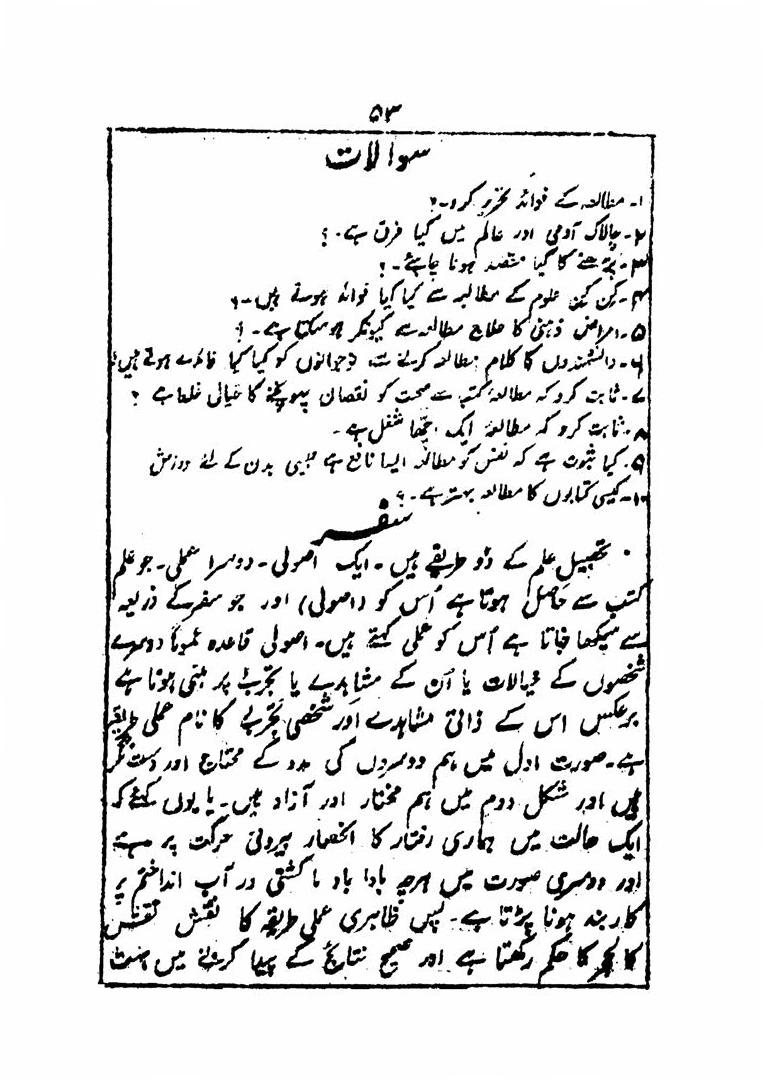 ۵۳
سوالات
۱۔ مطالعہ کے فوائد تحریر کرو۔؟
۲۔ چالاک آدمی اور عالم میں کیا فرق ہے۔؟
۳۔ پڑھنے کا کیا مقصد ہونا چاہئے۔؟
۴۔ کِن کِن علوم کے مطالعہ سے کیا کیا فوائد ہوتے ہیں۔؟
۵۔ امراض ذہنی کا علاج مطالعہ سے کیونکر ہو سکتا ہے۔؟
۶۔ دانشمندوں کا کلام مطالعہ کرنے سے نوجوانوں کو کیا کیا فائدے ہوتے ہیں؟
۷۔ ثابت کرو کہ مطالعۂ کتب سے صحت کو نقصان پہونچنے کا خیالی غلط ہے ؟
۸۔ ثابت کرو کہ مطالعہ ایک اچھا شغل ہے۔
۹۔ کیا ثبوت ہے کہ نفس کو مطالعہ ایسا نافع ہے جیسی بدن کے لئے ورزش
۱۰۔ کیسی کتابوں کا مطالعہ بہتر ہے۔؟
سفر
تحصیلِ علم کے دو طریقے ہیں۔ ایک اصولی۔ دوسرا عملی۔ جو علم
کتب سے حاصل ہوتا ہے اُس کو (اصولی) اور جو سفر کے ذریعہ
سے سیکھا جاتا ہے اُس کو عملی کہتے ہیں۔ اصولی قاعدہ عموماً دوسرے
شخصوں کے خیالات یا اُن کے مشاہدے یا تجربے پر مبنی ہوتا ہے
برعکس اس کے ذاتی مشاہدے اور شخصی تجربے کا نام عملی طریقہ
ہے۔ صورت اول میں ہم دوسروں کی مدد کے محتاج اور دست نگر
ہیں اور شکل دوم میں ہم مختار اور آزاد ہیں۔ یا یوں کہئے کہ
ایک حالت میں ہماری رفتار کا انحصار بیرونی حرکت پر ہے
اور دوسری صورت میں ہرچہ بادا باد ما کشتی در آب انداختم پر
کاربند ہونا پڑتا ہے۔ پس ظاہری عملی طریقہ کا نقش نقش
کالحجر کا حکم رکھتا ہے اور صحیح نتائج کے پیدا کرنے میں بہت